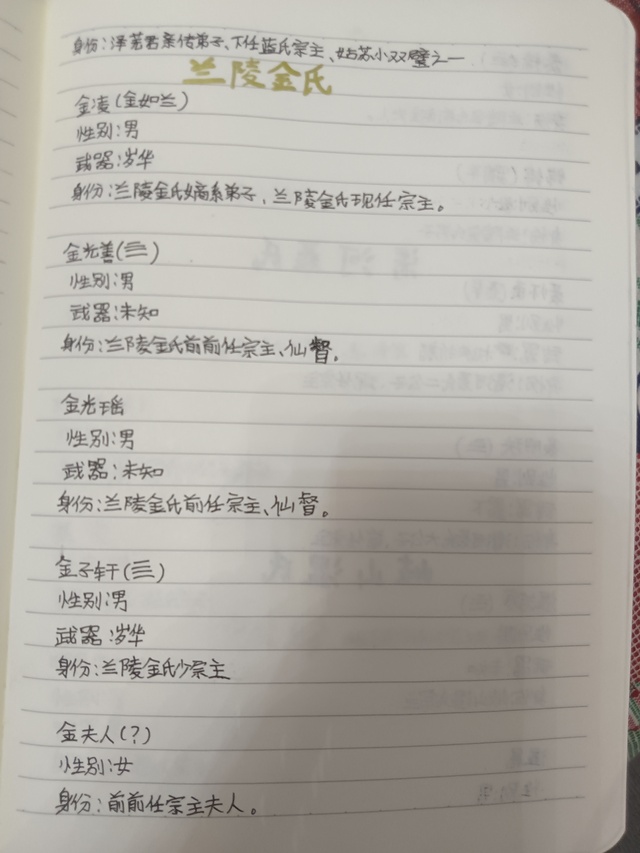 身份:泽芜君亲传弟子、下任蓝氏宗主、姑苏小双璧之一
兰陵金氏
金凌(金如兰)
性别:男
武器:岁华
身份:兰陵金氏嫡系弟子,兰陵金氏现任宗主。
金光善(三)
性别:男
武器:未知
身份:兰陵金氏前前任宗主、仙督。
金光瑶
性别:男
武器:未知
身份:兰陵金氏前任宗主、仙督。
金子轩(三)
性别:男
武器:岁华
身份:兰陵金氏少宗主
金夫人(?)
性别:女
身份:前前任宗主夫人。